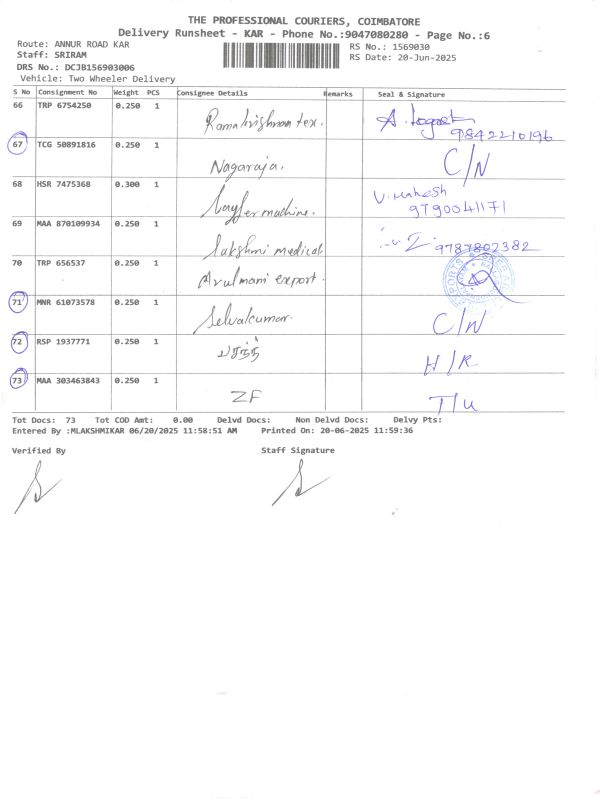 THE PROFESSIONAL COURIERS, COIMBATORE
Delivery Runsheet - KAR - Phone No.:9047080280 - Page No.:6
Route: ANNUR ROAD KAR
RS No.: 1569030
Staff: SRIRAM
RS Date: 20-Jun-2025
DRS No.: DCJB156903006
Vehicle: Two Wheeler Delivery
S No Consignment No Weight PCS Consignee Details Remarks Seal & Signature
66 TRP 6754250 0.250 1 Ramakrishnan tex. A. 9842210196
67 TCG 50891816 0.250 1 Nagaraja. C/N
68 HSR 7475368 0.300 1 machine. V. Mahesh 9790041171
69 MAA 870109934 0.250 1 Lakshmi medical 9787802382
70 TRP 656537 0.250 1 Arulmani export. EXPORTS
71 MNR 61073578 0.250 1 Selvakumar. C/N
72 RSP 1937771 0.250 1 H/R
73 MAA 303463843 0.250 1 ZF T/U
Tot Docs: 73 Tot COD Amt: 0.00 Delvd Docs: Non Delvd Docs: Delvy Pts:
Entered By :MLAKSHMIKAR 06/20/2025 11:58:51 AM Printed On: 20-06-2025 11:59:36
Verified By Staff Signature